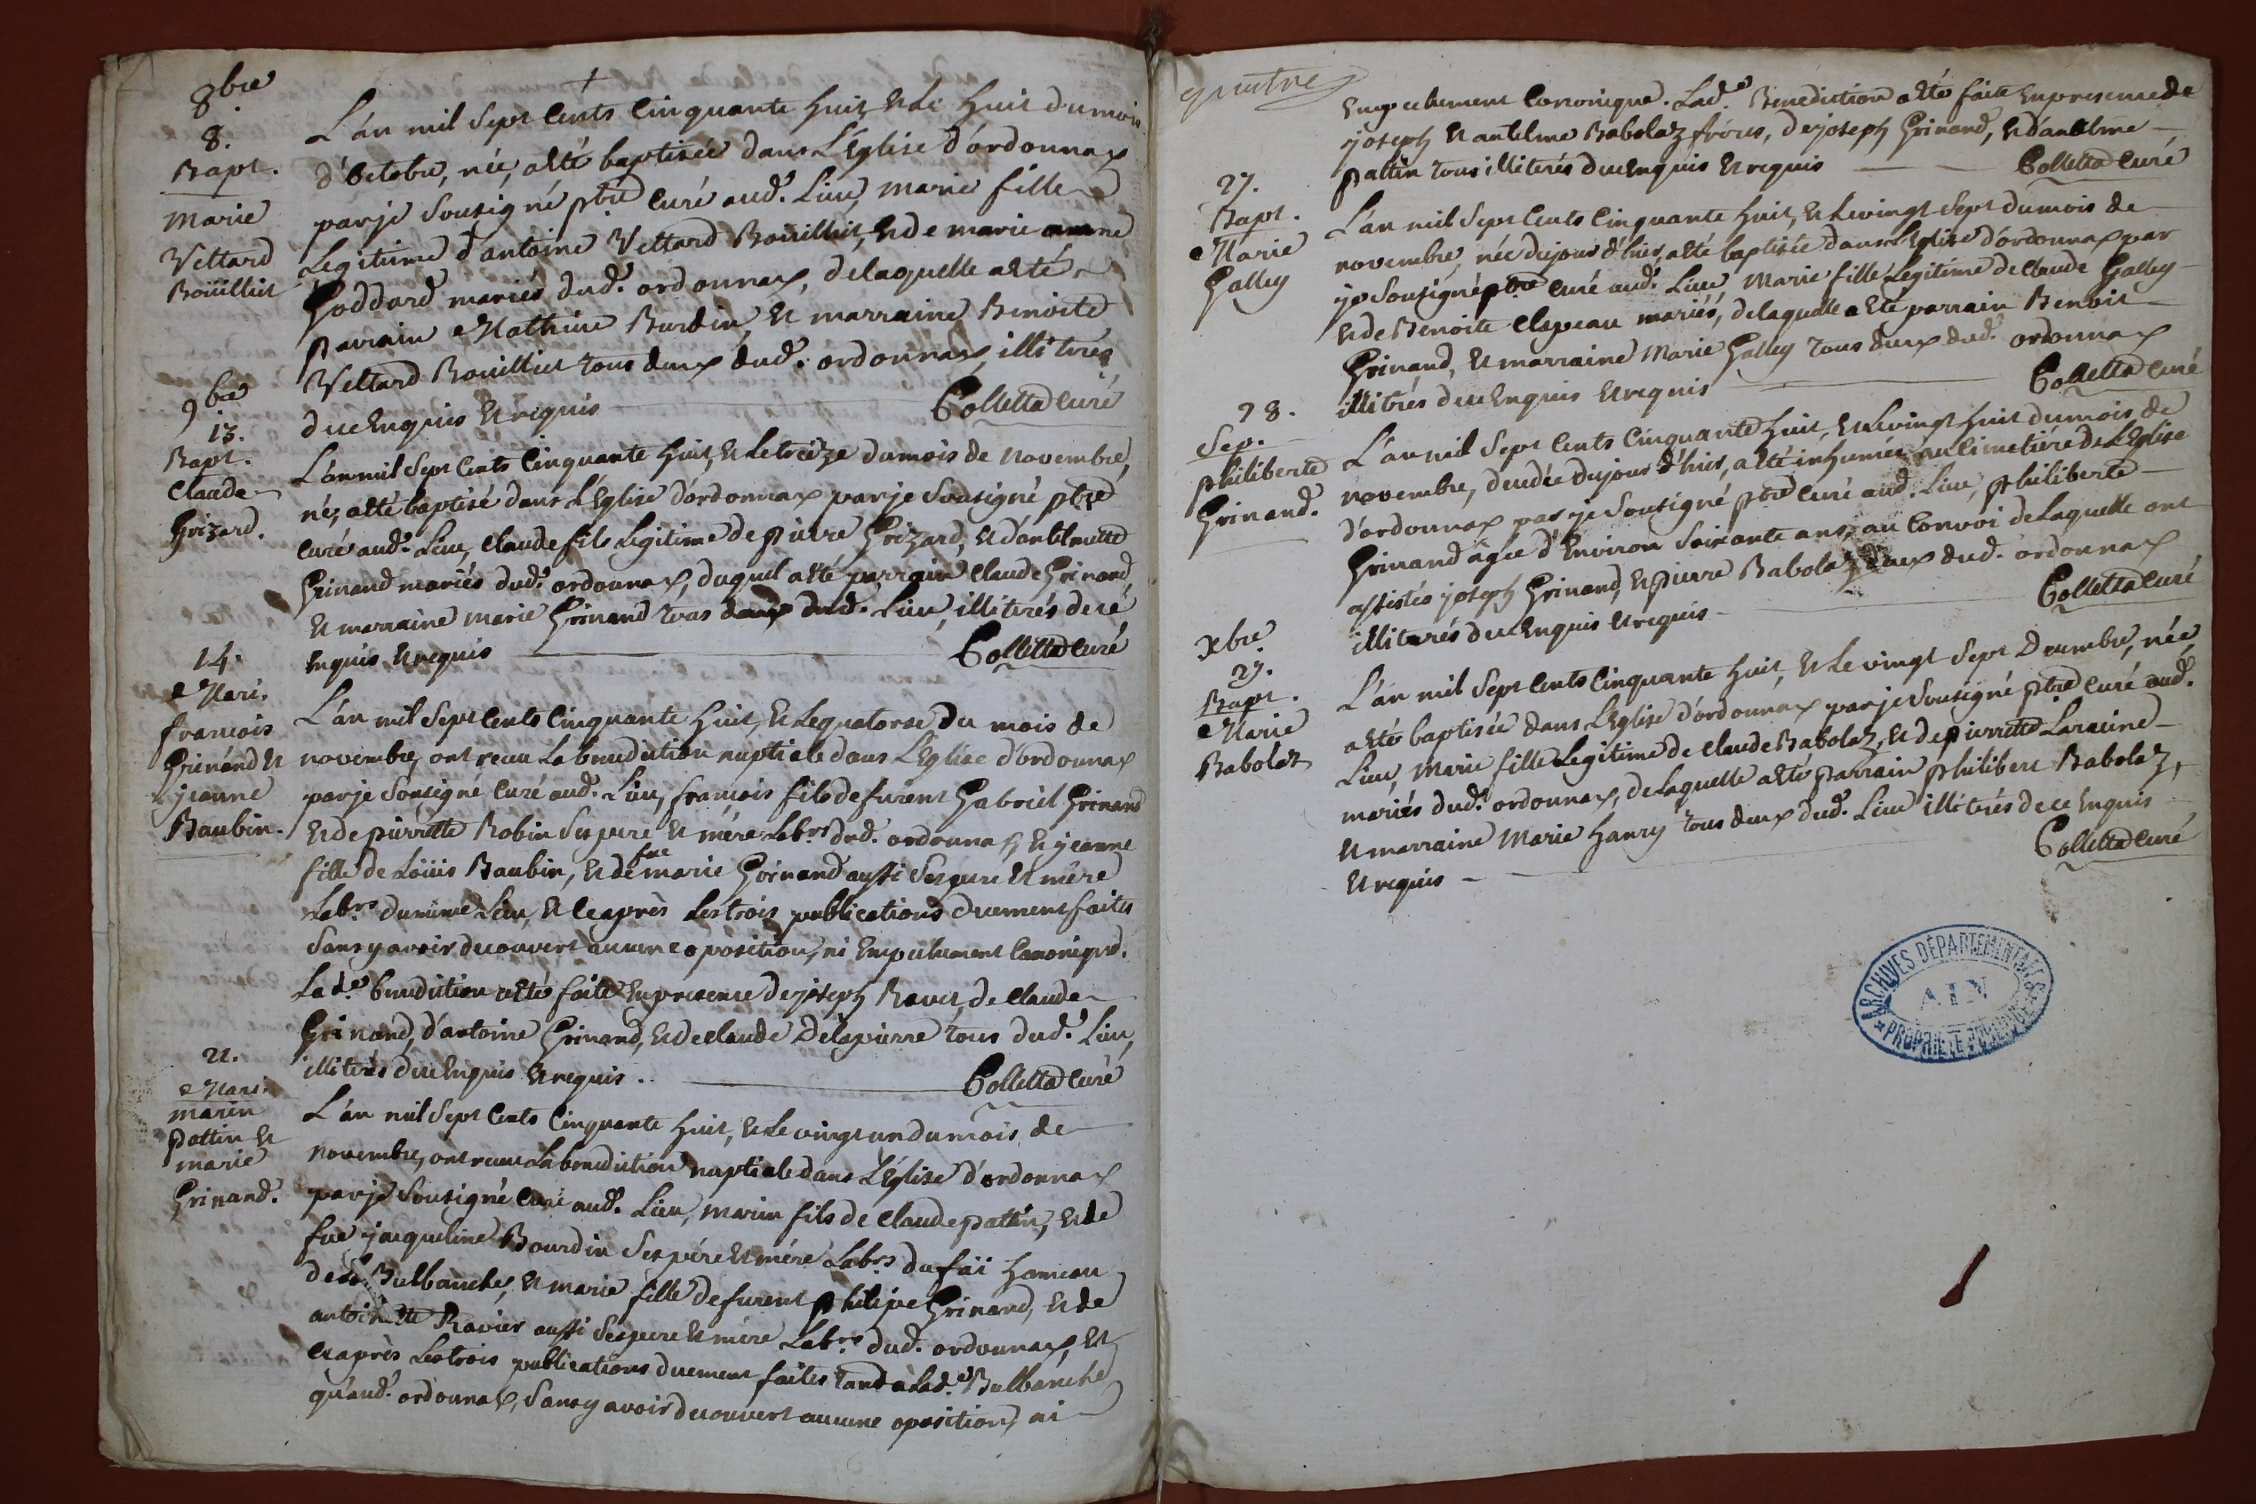 8bre
8.
Bapt.
Marie
Vettard
Boüilliet
L'án mil Sept Cents Cinquante huit, et Le huit du mois
d'Octobre, née, a êté baptisée dans L'Eglise d'ordonnax
par je Sousigné ptre Curé aud.t Lieu, Marie fille
Legitime d'antoine Vettard Bouilliet, et de marie anne
Goddard mariés dud.t ordonnax, de laquelle a êté
parrain Mathieu Burdin, et marraine Benoite
Vettard Bouilliet tous deux dud.t ordonnax, illitrés
de ce Enquis et requis
Colletta Curé
9bre
13.
Bapt.
Claude
Grizard.
L'án mil Sept Cents Cinquante huit, et le treize du mois de Novembre,
né, a êté baptisé dans L'Eglise d'ordonnax par je Sousigné ptre
Curé aud.t Lieu, Claude fils Legitime de pierre Grizard, et d'anthelmette
Grinand mariés dud.t ordonnax, duquel a êté parrain Claude Grinand,
et marraine Marie Grinand tous deux dud.t Lieu, illiterés de cé
Enquis et requis
Colletta Curé
14.
Mari.
francois
Grinand et
jeanne
Baubin.
L'án mil Sept Cents Cinquante huit, et Le quatorse du mois de
novembre, ont recu La benediction nuptiale dans L'Eglise d'ordonnax
par je Sousigné Curé aud.t Lieu, francois fils de furent Gabriel Grinand
et de pierrette Robin Ses pere et mére Lab.rs dud.t ordonnax, et jeanne
fille de Loüis Baubin, et de fue marie Grinand aussi Ses pere et mére
Lab.rs du même Lieu, et ce après Les trois publications duement faites
Sans y avoir decouvert aucune oposition, ni Empechement Canonique.
La d.e benediction a êté faite En presence de joseph Ravet, de Claude
Grinand, d'antoine Grinand, et de Claude Delapierre tous dud.t Lieu,
illiterés de ce Enquis et requis.
Colletta Curé
21.
Mari.
marin
pattin et
marie
Grinand.
L'án mil Sept Cents Cinquante huit, et Le vingt un du mois de
Novembre, ont recu La benediction nuptiale dans L'Eglise d'ordonnax
par je Sousigné Curé aud.t Lieu, Marin fils de Claude pattin, et de
fue jacqueline Bourdin Ses pére et mére Lab.rs du fäi hameau
de Bulbanche, et marie fille de furent philipe Grinand, et de
antoinette Ravier aussi Ses pere et mére Lab.rs dud.t ordonnax, et
ce après Les trois publications duement faites tand a Lad.e Bulbanche
qu'aud.t ordonnax, Sans y avoir decouvert aucune oposition, ni
quatre
Empechement Cononique. Lad.e Benediction a êté faite En presence de
joseph et antelme Babolaz fréres, de joseph Grinand, et d'antelme
pattin tous illiterés de ce Enquis et requis
Colletta Curé
27.
Bapt.
Marie
Galley
L'án mil Sept Cents Cinquante huit, et Le vingt Sept du mois de
novembre, née du jour d'hier, a êté baptisée dans L'Eglise d'ordonnax par
je Sousigné ptre Curé aud.t Lieu Marie fille Legitime de Claude Galley
et de Benoite Clapeau mariés, de laquelle a êté parrain Benoit
Grinand, et marraine Marie Galley tous deux dud.t ordonnax
illitrés de ce Enquis et requis
Colletta Curé
28.
Sep.
philiberte
Grinand.
L'án mil Sept Cents Cinquante huit, et Le vingt huit du mois de
novembre, decedée du jour d'hier, a êté inhumée au Cimetière de L'Eglise
d'ordonnax par je Sousigné ptre Curé aud.t Lieu, philiberte
Grinand âgée d'Environ Soixante ans, au Convoi de Laquelle ont
assistés joseph Grinand, et pierre Babolaz deux dud.t ordonnax
illiterés de ce Enquis et requis
Colletta Curé
Xbre
27.
Bapt.
Marie
Babolaz
L'án mil Sept Cents Cinquante huit, et Le vingt Sept Decembre, née,
a êté baptisée dans L'Eglise d'ordonnax par je Sousigné ptre Curé aud.t
Lieu, Marie fille Legitime de Claude Babolaz, et de pierrette Laraine
mariés dud.t ordonnax, de Laquelle a êté parrain philibert Babolaz,
et marraine Marie hanry tous deux dud.t Lieu illitrés de ce Enquis
et requis
Colletta Curé
ARCHIVES DÉPARTEMENTALES
AIN
PROPRIÉTÉ PUBLIQUE